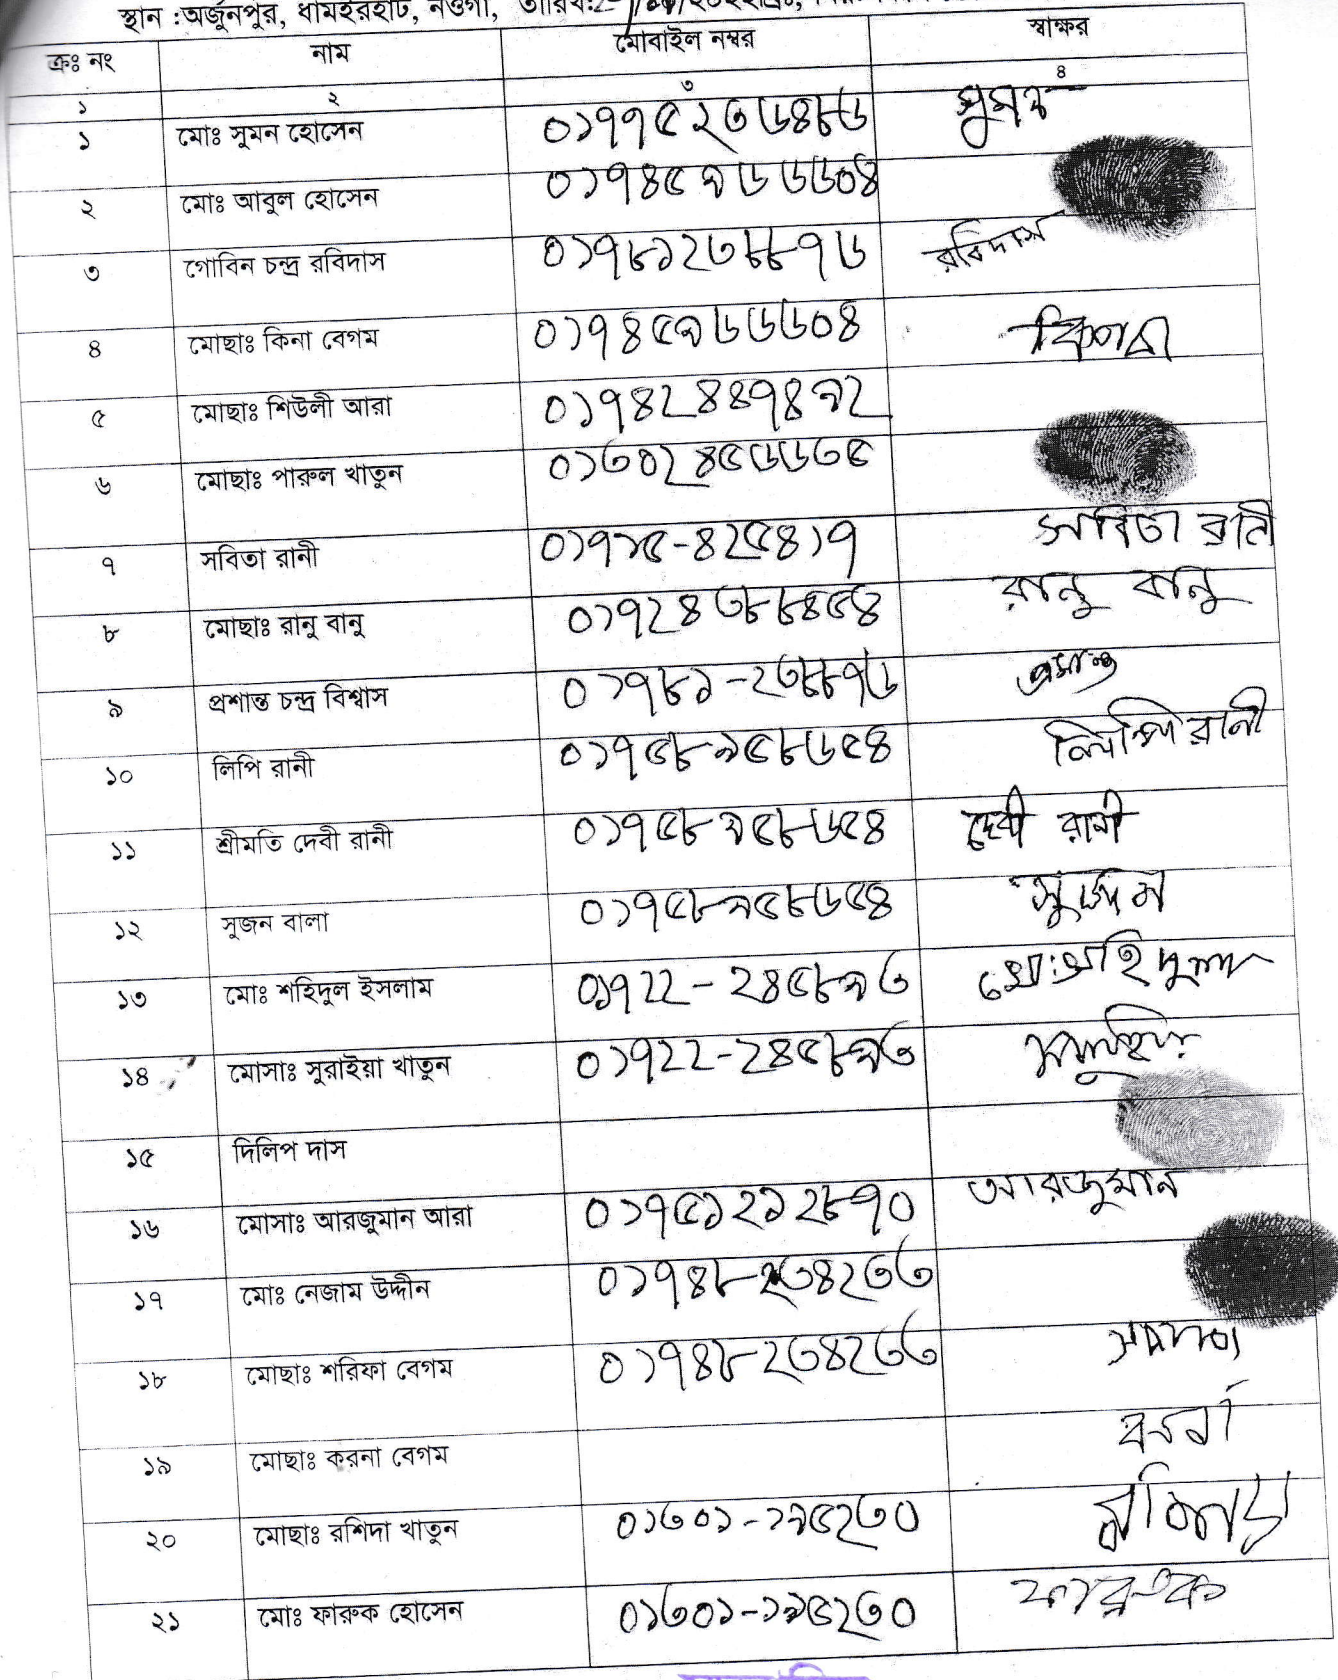 স্থান :অর্জুনপুর, ধামইরহাট, নওগাঁ, তারিখ:
ক্রঃ নং নাম মোবাইল নম্বর স্বাক্ষর
১ ২ ৩ ৪
১ মোঃ সুমন হোসেন ০১৭৭৫২৩৬৪৮৬ সুমন
২ মোঃ আবুল হোসেন ০১৭৪৫৯৬৬৬০৪
৩ গোবিন চন্দ্র রবিদাস ০১৭৮১২৩৮৮৭৬ রবিদাস
৪ মোছাঃ কিনা বেগম ০১৭৪৫৯৬৬৬০৪
৫ মোছাঃ শিউলী আরা ০১৭৪২৪৪৭৪৯২
৬ মোছাঃ পারুল খাতুন ০১৩০২৪৫৬৬৩৫
৭ সবিতা রানী ০১৭৯৫-৪২৫৪১৭ সবিতা রানী
৮ মোছাঃ রানু বানু ০১৭২৪৩৮৮৪৫৪ রানু বানু
৯ প্রশান্ত চন্দ্র বিশ্বাস ০১৭৮১-২৩৮৮৭৬ প্রসান্ত
১০ লিপি রানী ০১৭৫৮৯৫৮৬৫৪ লিপি রানী
১১ শ্রীমতি দেবী রানী ০১৭৫৮৯৫৮৬৫৪ দেবী রানী
১২ সুজন বালা ০১৭৫৮৯৫৮৬৫৪ সুজন
১৩ মোঃ শহিদুল ইসলাম ০১৭২২-২৪৫৮৯৩ মোঃ শহিদুল
১৪ মোসাঃ সুরাইয়া খাতুন ০১৭২২-২৪৫৮৯৩
১৫ দিলিপ দাস
১৬ মোসাঃ আরজুমান আরা ০১৭৫১২১২৮৭০ আরজুমান
১৭ মোঃ নেজাম উদ্দীন ০১৭৪৮২৩৪২৩৩
১৮ মোছাঃ শরিফা বেগম ০১৭৪৮২৩৪২৩৩
১৯ মোছাঃ করনা বেগম
২০ মোছাঃ রশিদা খাতুন ০১৩০১-১৯৫২৩০
২১ মোঃ ফারুক হোসেন ০১৩০১-১৯৫২৩০ ফারুক